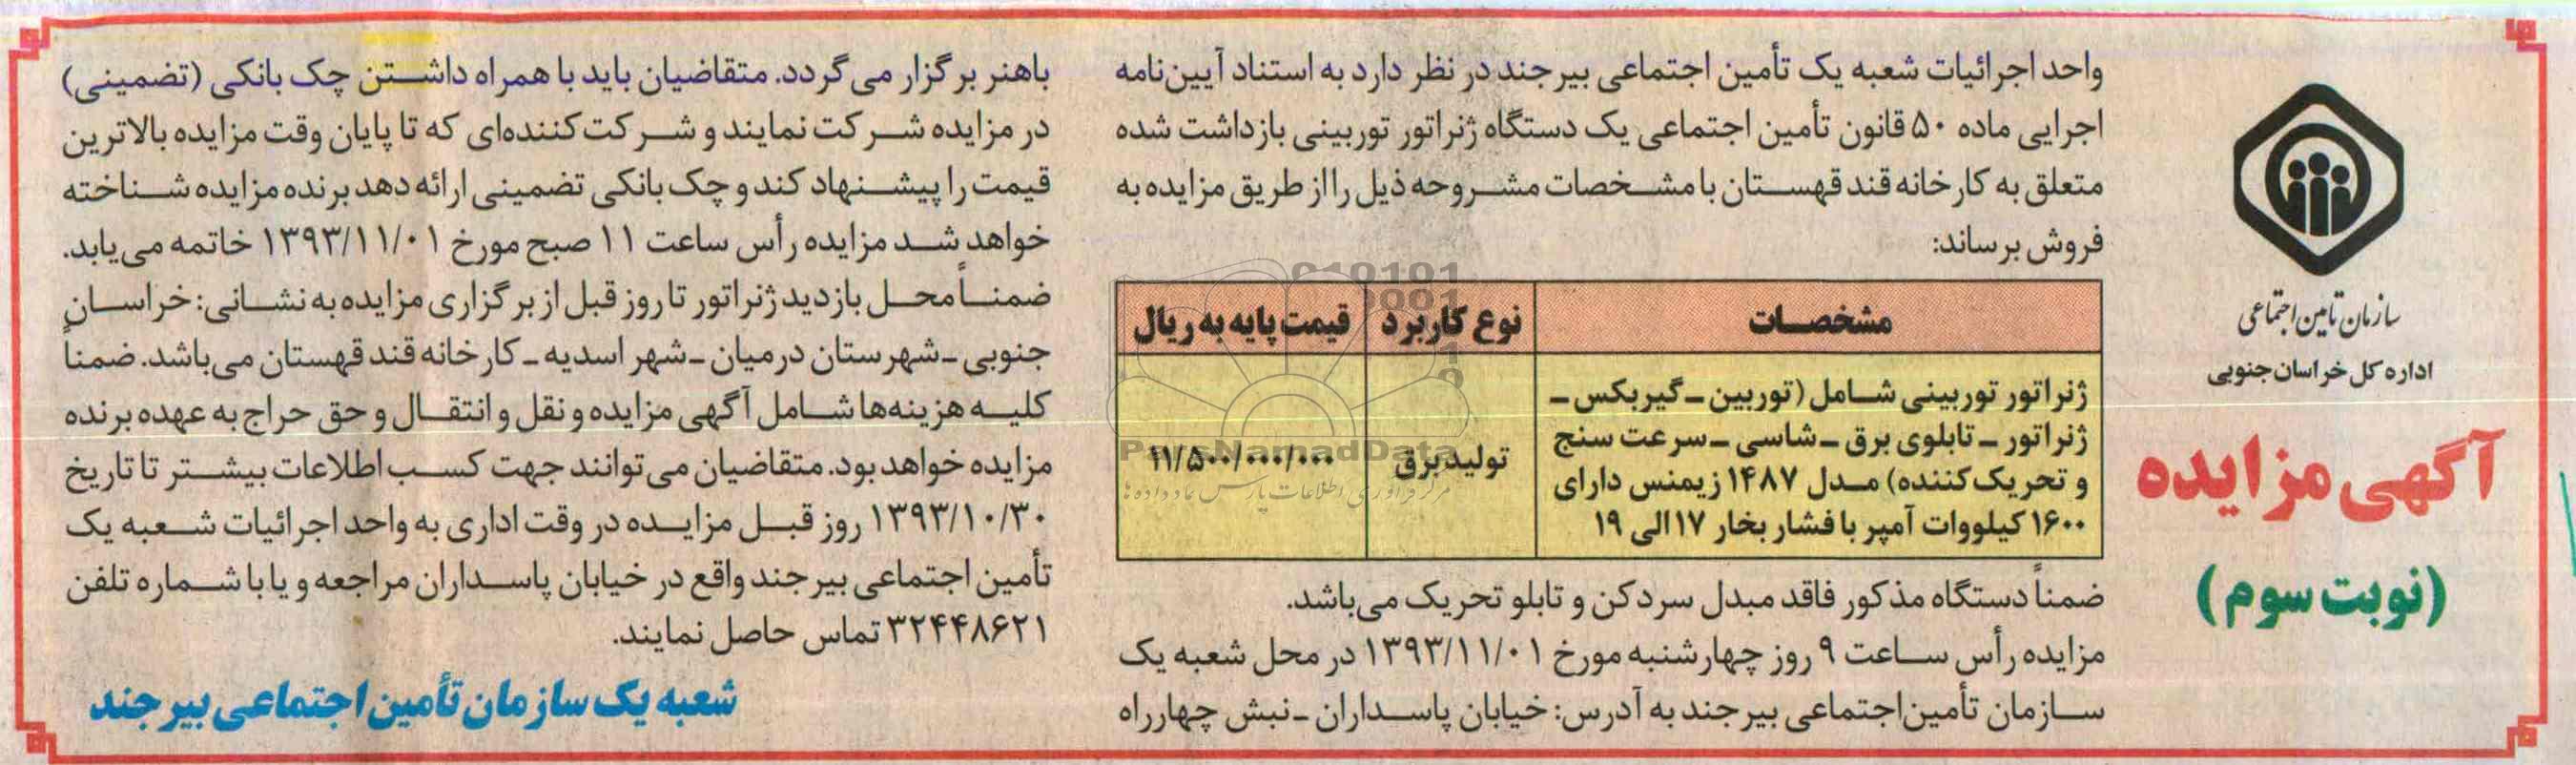 سازمان تامین اجتماعی
اداره کل خراسان جنوبی
آگهی مزایده
(نوبت سوم)
واحد اجرائیات شعبه یک تأمین اجتماعی بیرجند در نظر دارد به استناد آیین‌نامه
اجرایی ماده ۵۰ قانون تأمین اجتماعی یک دستگاه ژنراتور توربینی بازداشت شده
متعلق به کارخانه قند قهستان با مشخصات مشروحه ذیل را از طریق مزایده به
فروش برساند:
مشخصات
نوع کاربرد
قیمت پایه به ریال
ژنراتور توربینی شامل (توربین ـ گیربکس ـ
ژنراتور ـ تابلوی برق ـ شاسی ـ سرعت سنج
و تحریک کننده) مدل ۱۴۸۷ زیمنس دارای
۱۶۰۰ کیلووات آمپر با فشار بخار ۱۷ الی ۱۹
تولید برق
۱۱/۵۰۰/۰۰۰/۰۰۰
ParsNamadData
مرکز فرآوری اطلاعات پارس نماد داده ها
ضمناً دستگاه مذکور فاقد مبدل سردکن و تابلو تحریک می‌باشد.
مزایده رأس ساعت ۹ روز چهارشنبه مورخ ۱۳۹۳/۱۱/۰۱ در محل شعبه یک
سازمان تأمین‌اجتماعی بیرجند به آدرس: خیابان پاسداران ـ نبش چهارراه
باهنر برگزار می گردد. متقاضیان باید با همراه داشتن چک بانکی (تضمینی)
در مزایده شرکت نمایند و شرکت‌کننده‌ای که تا پایان وقت مزایده بالاترین
قیمت را پیشنهاد کند و چک بانکی تضمینی ارائه دهد برنده مزایده شناخته
خواهد شد مزایده رأس ساعت ۱۱ صبح مورخ ۱۳۹۳/۱۱/۰۱ خاتمه می‌یابد.
ضمناً محل بازدید ژنراتور تا روز قبل از برگزاری مزایده به نشانی: خراسان
جنوبی ـ شهرستان درمیان ـ شهر اسدیه ـ کارخانه قند قهستان می‌باشد. ضمناً
کلیه هزینه‌ها شامل آگهی مزایده و نقل و انتقال و حق حراج به عهده برنده
مزایده خواهد بود. متقاضیان می‌توانند جهت کسب اطلاعات بیشتر تا تاریخ
۱۳۹۳/۱۰/۳۰ روز قبل مزایده در وقت اداری به واحد اجرائیات شعبه یک
تأمین اجتماعی بیرجند واقع در خیابان پاسداران مراجعه و یا با شماره تلفن
۳۲۴۴۸۶۲۱ تماس حاصل نمایند.
شعبه یک سازمان تأمین اجتماعی بیرجند